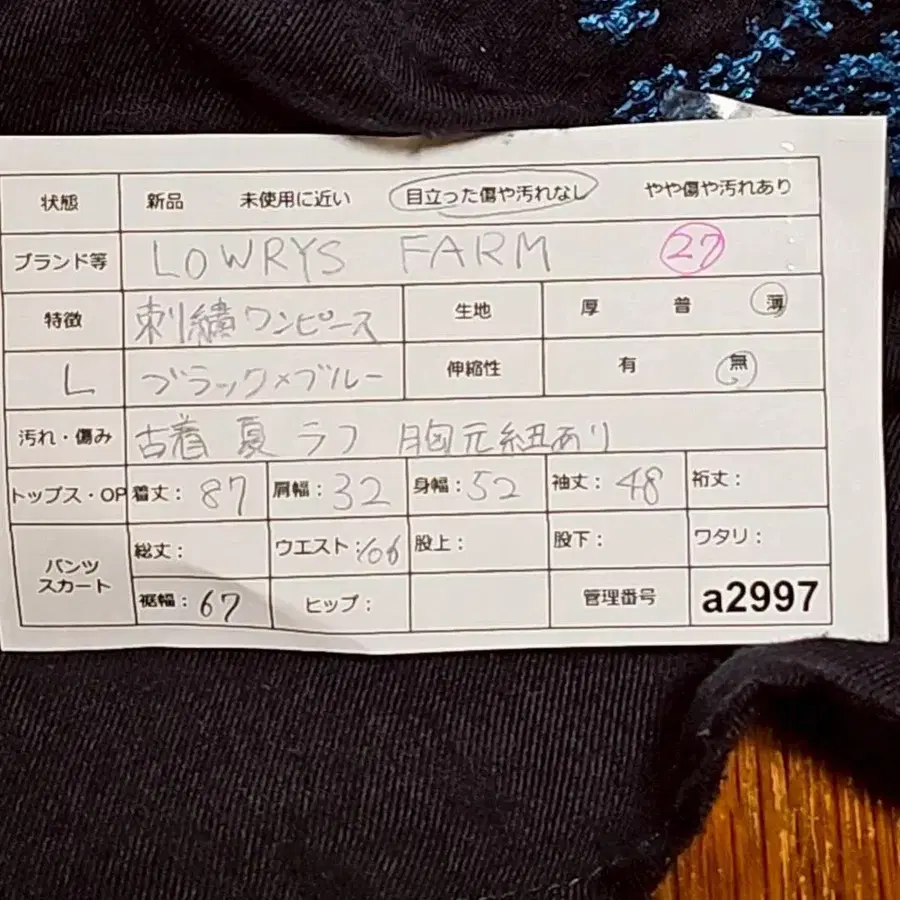 状態 新品 未使用に近い 目立った傷や汚れなし やや傷や汚れあり
ブランド等 LOWRYS FARM 27
特徴 刺繍ワンピース 生地 厚 普 薄
L ブラック×ブルー 伸縮性 有 無
汚れ・傷み 古着 夏 ラフ 胸元紐あり
トップス・OP 着丈：87 肩幅：32 身幅：52 袖丈：48 裄丈：
パンツ スカート 総丈： ウエスト：106 股上： 股下： ワタリ：
裾幅：67 ヒップ： 管理番号 a2997